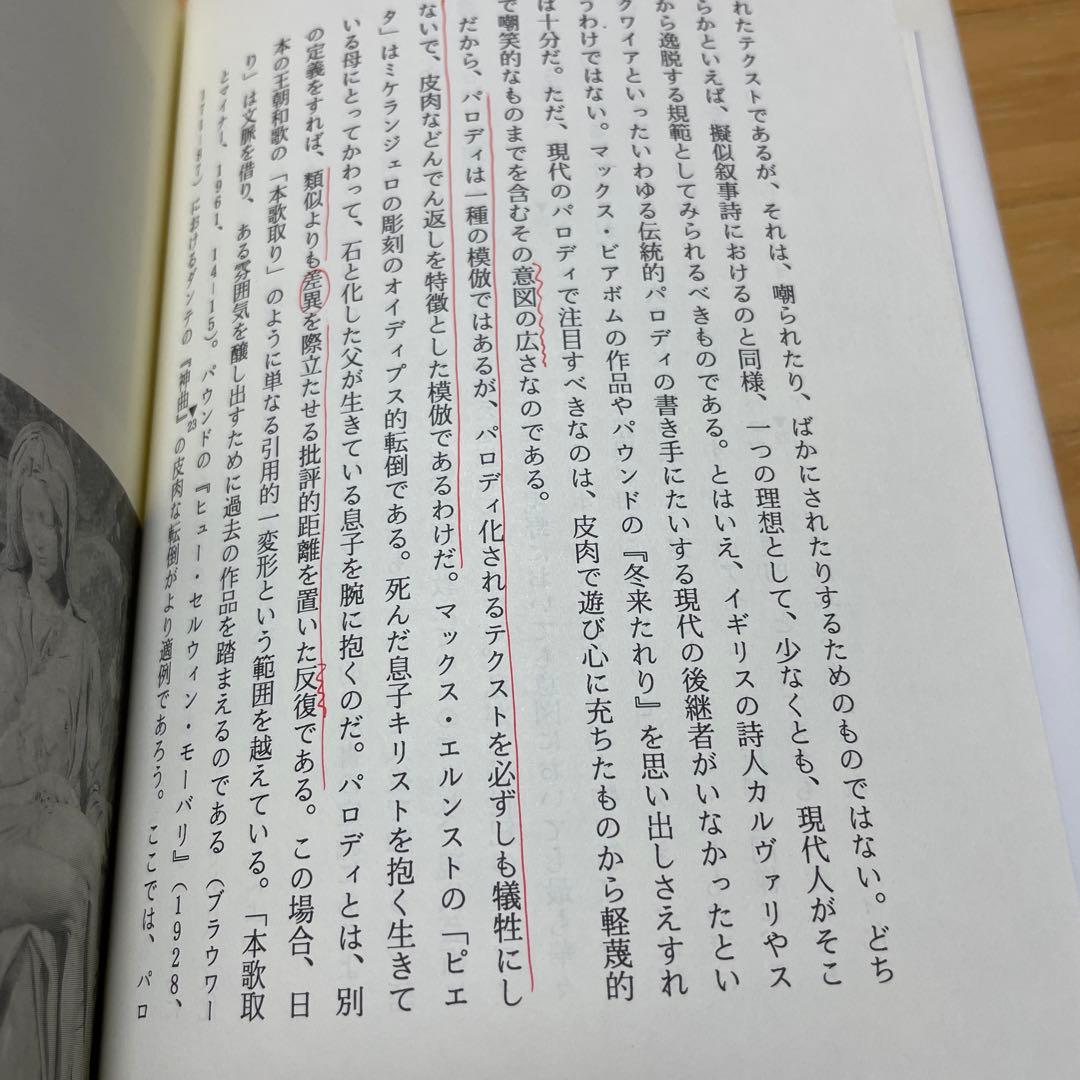 れたテクストであるが、それは、嘲られたり、ばかにされたりするためのものではない。どち
らかといえば、擬似叙事詩におけるのと同様、一つの理想として、少なくとも、現代人がそこ
から逸脱する規範としてみられるべきものである。とはいえ、イギリスの詩人カルヴァリやス
クワイアといったいわゆる伝統的パロディの書き手にたいする現代の後継者がいなかったとい
うわけではない。マックス・ビアボムの作品やパウンドの『冬来たれり』を思い出しさえすれ
は十分だ。ただ、現代のパロディで注目すべきなのは、皮肉で遊び心に充ちたものから軽蔑的
で嘲笑的なものまでを含むその意図の広さなのである。
だから、パロディは一種の模倣ではあるが、パロディ化されるテクストを必ずしも犠牲にし
ないで、皮肉などんでん返しを特徴とした模倣であるわけだ。マックス・エルンストの「ピエ
タ」はミケランジェロの彫刻のオイディプス的転倒である。死んだ息子キリストを抱く生きて
いる母にとってかわって、石と化した父が生きている息子を腕に抱くのだ。パロディとは、別
の定義をすれば、類似よりも差異を際立たせる批評的距離を置いた反復である。この場合、日
本の王朝和歌の「本歌取り」のように単なる引用的一変形という範囲を越えている。「本歌取
り」は文脈を借り、ある雰囲気を醸し出すために過去の作品を踏まえるのである（ブラウワー
とマイナー、1961、14−15）。パウンドの『ヒュー・セルウィン・モーバリ』（1928、
）におけるダンテの『神曲』▼23の皮肉な転倒がより適例であろう。ここでは、パロ